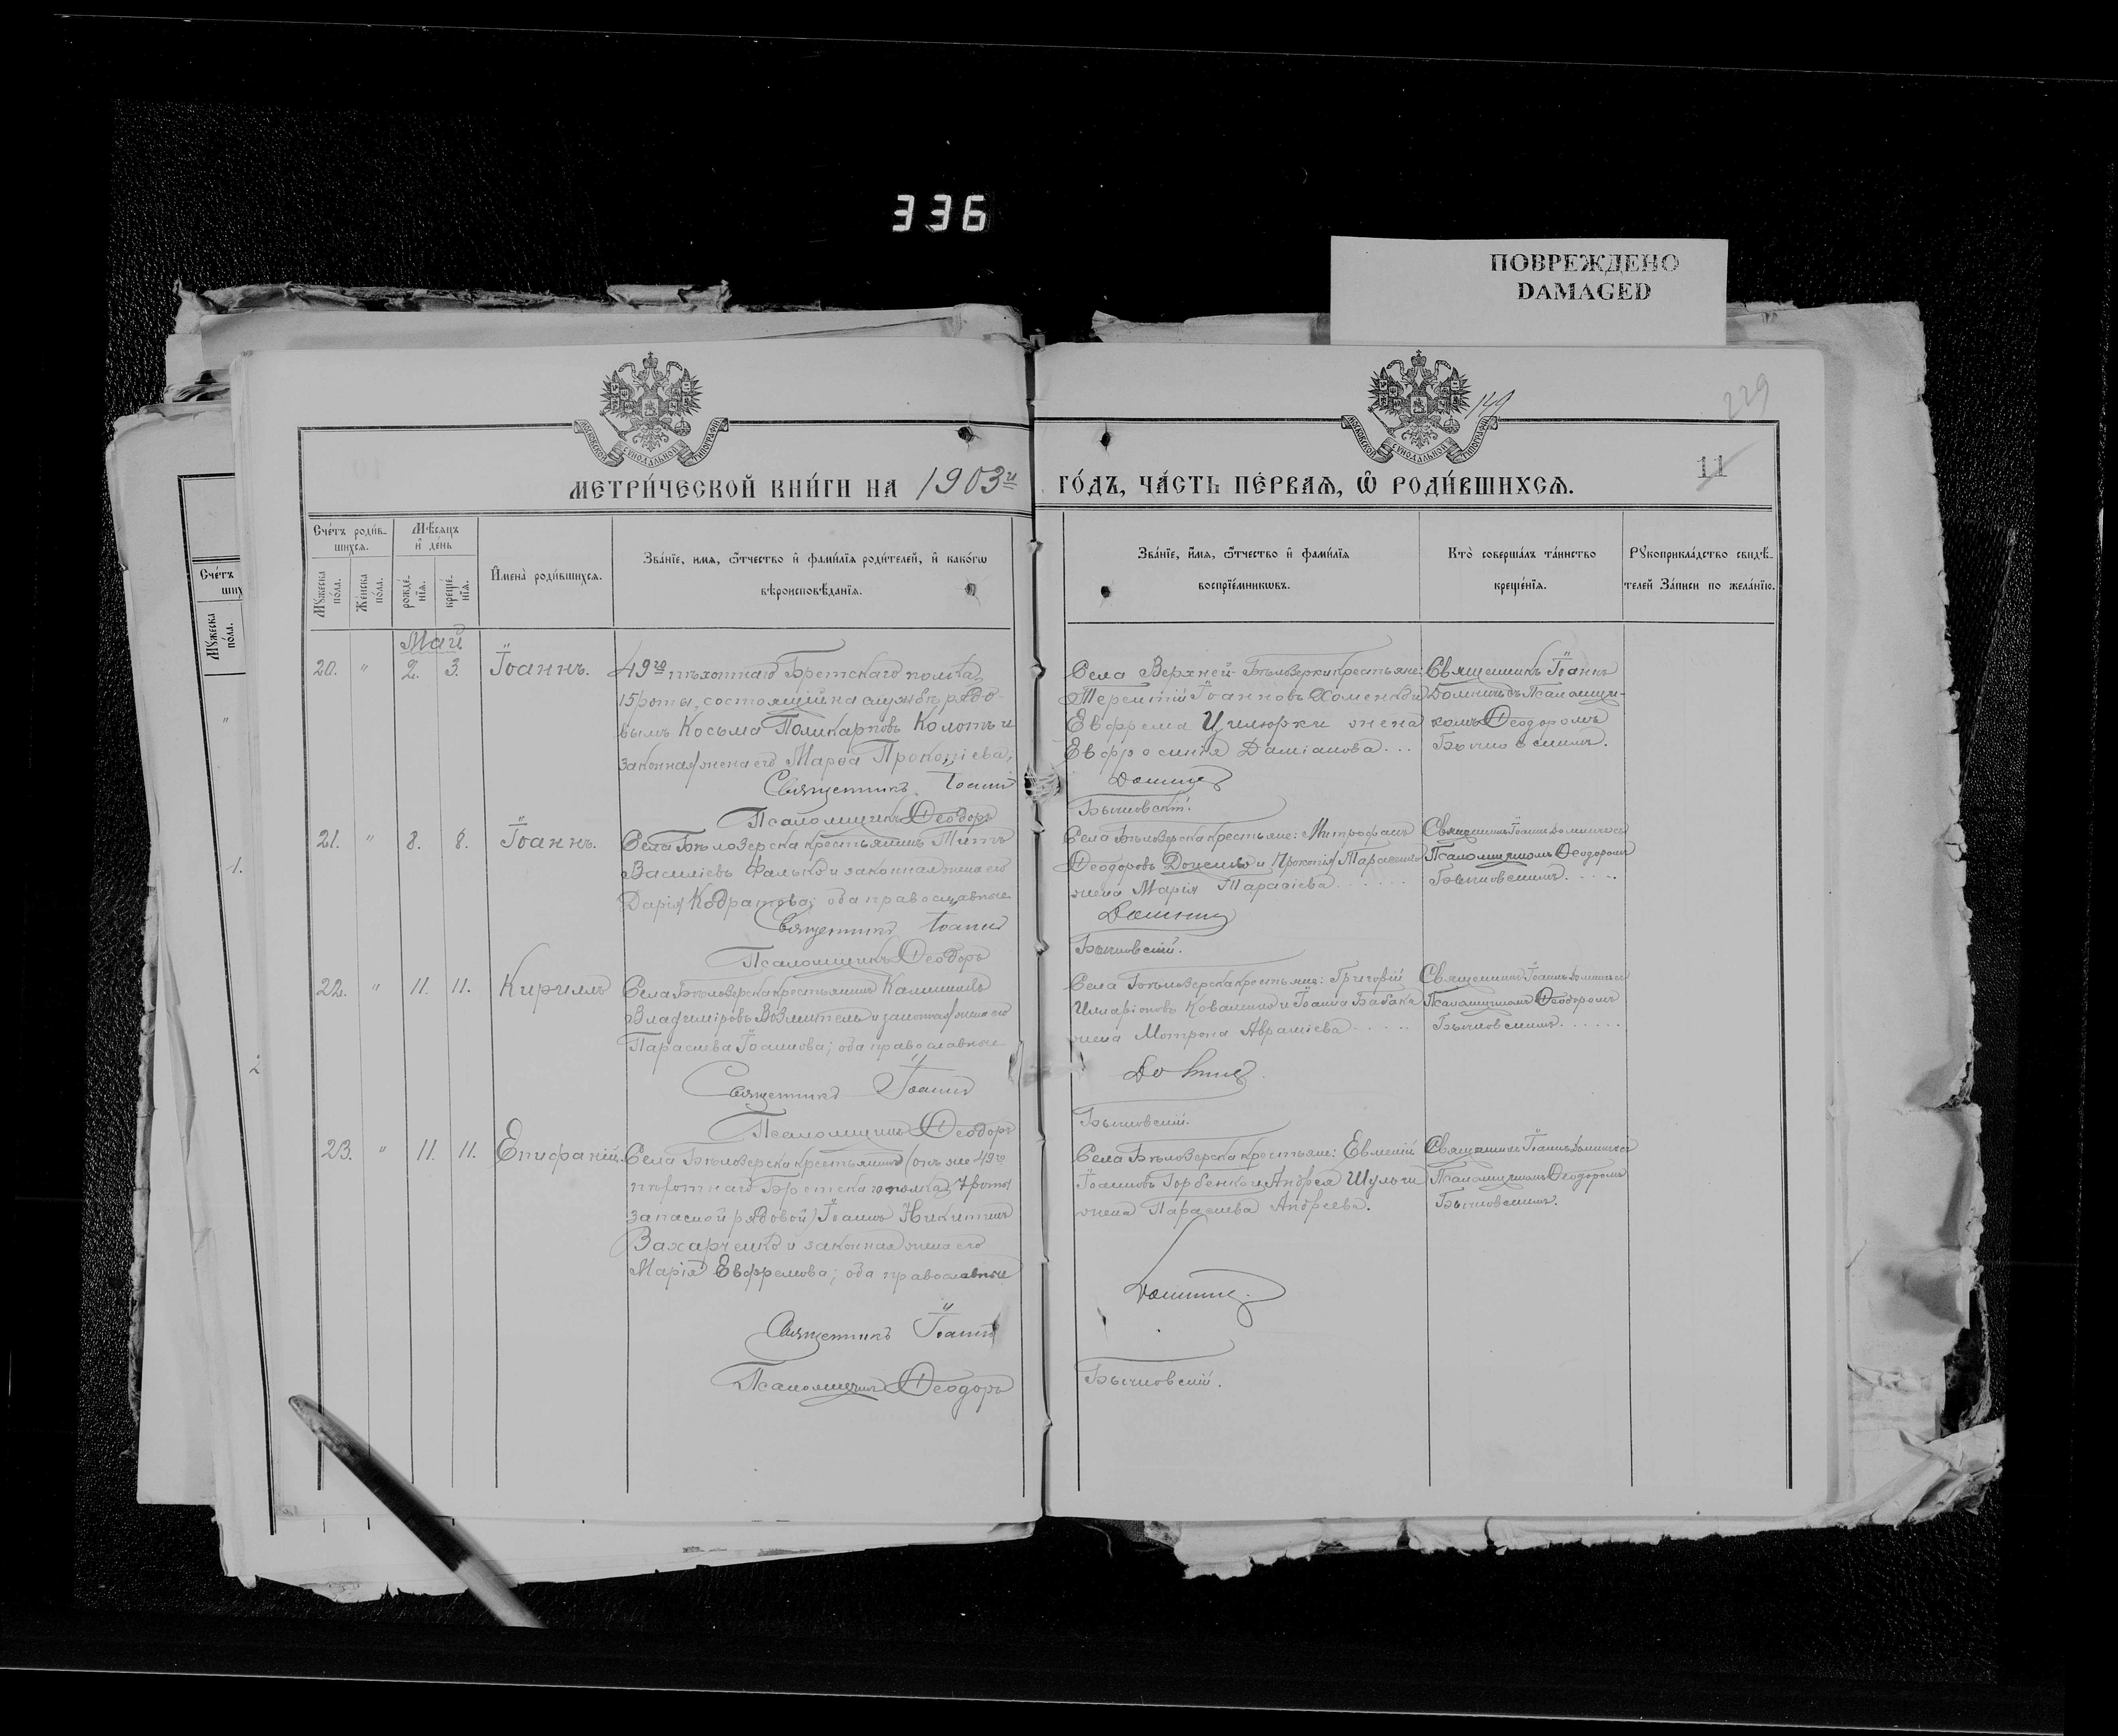 336
ПОВРЕЖДЕНО
DAMAGED
149
229
11
МЕТРИ́ЧЕСКОЙ КНИ́ГИ НА 1903й
ГО́ДЪ, ЧА́СТЬ ПЕ́РВАѦ, Ѽ РОДИ́ВШИХСѦ.
МОСКОВСКОЙ СѴНОДАЛЬНОЙ ТИПОГРАФІИ
МОСКОВСКОЙ СѴНОДАЛЬНОЙ ТИПОГРАФІИ
Сче́тъ роди́в-
шихсѧ.
Мѣ́сяцъ
и҆ де́нь
Мꙋ́жеска
по́ла.
Же́нска
по́ла.
рожде́-
нїѧ.
креще́-
нїѧ.
И҆мена̀ роди́вшихсѧ.
Зва́нїе, имѧ, ѻ҆́тчество и҆ фами́лїѧ роди́телей, и҆ како́гѡ
вѣроисповѣ́данїѧ.
Зва́нїе, и҆́мѧ, ѻ҆́тчество и҆ фами́лїѧ
воспрїе́мникѡвъ.
Кто̀ соверша́лъ та́инство
креще́нїѧ.
Рꙋкоприкла́дство свидѣ́-
телей За́писи по жела́нїю.
Май
20. " 2. 3. Іоаннъ.
49го пѣхотнаго Брестскаго полка,
15 роты, состоящій на службѣ рядо-
вымъ Косьма Поликарповъ Колотъ и
законная жена его Марѳа Прокопіева,
Священникъ Іоаннъ
Псаломщикъ Ѳеодоръ
Села Верхней-Бѣлозерки крестьяне:
Терентій Іоанновъ Хоменко и
Евфрема Цилюрки жена
Евфросинія Даміанова...
Бычковскій.
Священникъ Іоаннъ
съ Псаломщи-
комъ Ѳеодоромъ
Бычковскимъ.
21. " 8. 8. Іоаннъ.
Села Бѣлозерска крестьянинъ Титъ
Василіевъ Фалько и законная жена его
Дарія Кодратова; оба православные
Священникъ Іоаннъ
Псаломщикъ Ѳеодоръ
Села Бѣлозерска крестьяне: Митрофанъ
Ѳеодоровъ и Прокопія Тарасенко
жена Марія Тарасіева......
Бычковскій.
Священникъ Іоаннъ
Псаломщикомъ Ѳеодоромъ
Бычковскимъ.....
22. " 11. 11. Кириллъ
Села Бѣлозерска крестьянинъ Каллиникъ
Владиміровъ и законная жена его
Параскева Іоаннова; оба православные
Священникъ Іоаннъ
Псаломщикъ Ѳеодоръ
Села Бѣлозерска крестьяне: Григорій
Иларіоновъ Коваленко и Іоанна Бабака
жена Мотрона Авраміева.....
Бычковскій.
Священникъ Іоаннъ
Псаломщикомъ Ѳеодоромъ
Бычковскимъ......
23. " 11. 11. Епифаній.
Села Бѣлозерска крестьянинъ (онъ же 49го
пѣхотнаго Брестскаго полка, 7 роты
запасной рядовой) Іоаннъ Никитинъ
Захарченко и законная жена его
Марія Евфремова; оба православные
Священникъ Іоаннъ
Псаломщикъ Ѳеодоръ
Села Бѣлозерска крестьяне: Евменій
Іоанновъ Горбенко и Андрея Шульги
жена Параскева Андреева.
Бычковскій.
Священникъ Іоаннъ
Псаломщикомъ Ѳеодоромъ
Бычковскимъ.